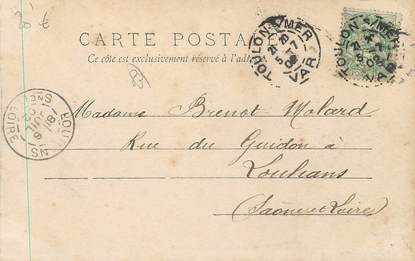 20 €
CARTE POSTALE
Ce côté est exclusivement réservé à l'adresse
TOULON-S-MER
VAR
TOULON-S-MER
VAR
LOUHANS
SNE ET LOIRE
Madame Brenot-Wolard
Rue du Guidon à
Louhans
(Saône et Loire)